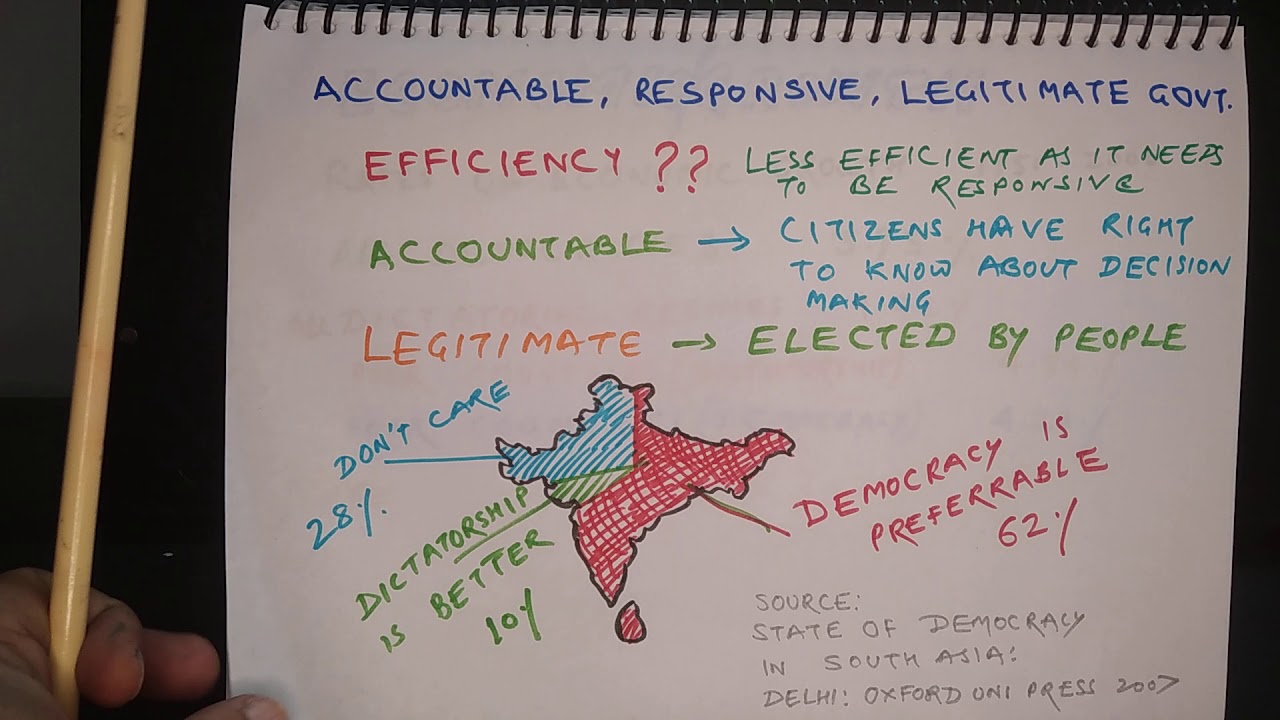 ACCOUNTABLE, RESPONSIVE, LEGITIMATE GOVT.
EFFICIENCY ?? LESS EFFICIENT AS IT NEEDS
TO BE RESPONSIVE
ACCOUNTABLE → CITIZENS HAVE RIGHT
TO KNOW ABOUT DECISION
MAKING
LEGITIMATE → ELECTED BY PEOPLE
DON'T CARE
28%
DICTATORSHIP
IS BETTER
10%
DEMOCRACY IS
PREFERRABLE
62%
SOURCE:
STATE OF DEMOCRACY
IN SOUTH ASIA:
DELHI: OXFORD UNI PRESS 2007